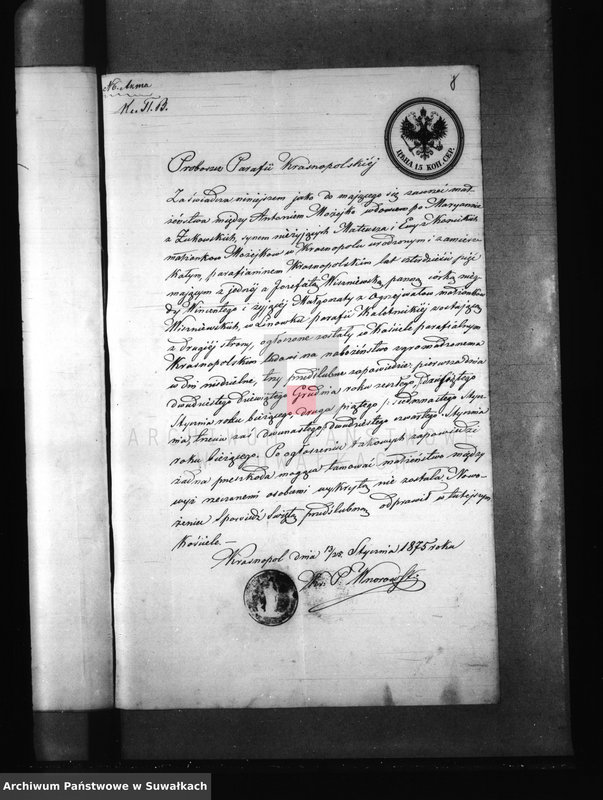 No. Axma
8
ЦѢНА 15 КОП. СЕР.
Proboszcz Parafii Krasnopolskiéj
Zaświadcza niniejszem jako do mającego się zawrzeć mał-
żeństwa między Antonim Możejko wdowcem po Maryannie
z Żukowskich, synem nieżyjących Mateusza i Ewy z
małżonków Możejków w Krasnopolu urodzonym i zamiesz-
kałym, parafianinem Krasnopolskim lat czterdzieści pięć
mającym z jednéj a Jozefatą Wiszniewską panną córką nieg-
dy Wincentego i żyjącéj Małgorzaty z małżonków
Wiszniewskich, w Linówku parafii Kaletnickiéj zostającą
z drugiéj strony, ogłoszone zostały w Kościele parafialnym
Krasnopolskim ludowi na nabożeństwo zgromadzonemu
w dni niedzielne, trzy przedślubne zapowiedzie: pierwsza dnia
dwudziestego dziewiątego Grudnia roku zeszłego,
Stycznia roku bieżącego, druga piątego / siedmnastego Stycz-
nia, trzecia zaś dwunastego / dwudziestego czwartego Stycznia
roku bieżącego. Po ogłoszeniu takowych zapowiedzi
żadna przeszkoda mogąca tamować małżeństwo między
wyż rzeczonemi osobami wykrytą nie została. Nowo-
żeniec Spowiedź Świętą przedślubną odprawił w tutejszym
Kościele. —
Krasnopol dnia 13/25 Stycznia 1875 roku
P. Knorowski
ARCHIWUM PAŃSTWOWE
W SUWAŁKACH
Archiwum Państwowe w Suwałkach